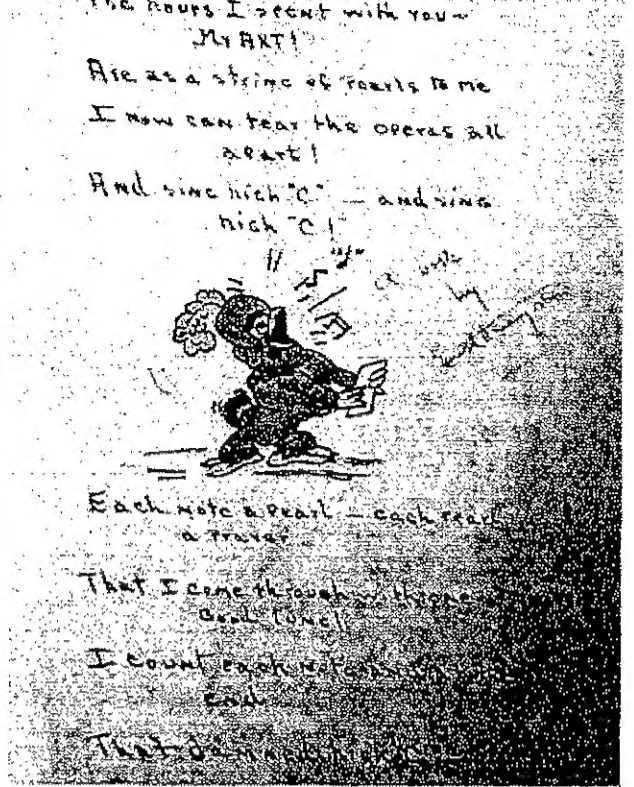 The hours I spent with you —
My ART!
Are as a string of Pearls to me
I now can tear the operas all
apart!
And sing high "C" — and sing
high "C"!
by
Each note a pearl — each pearl
a prayer
That I come through with one
Good tune!!
I count each note
end
That